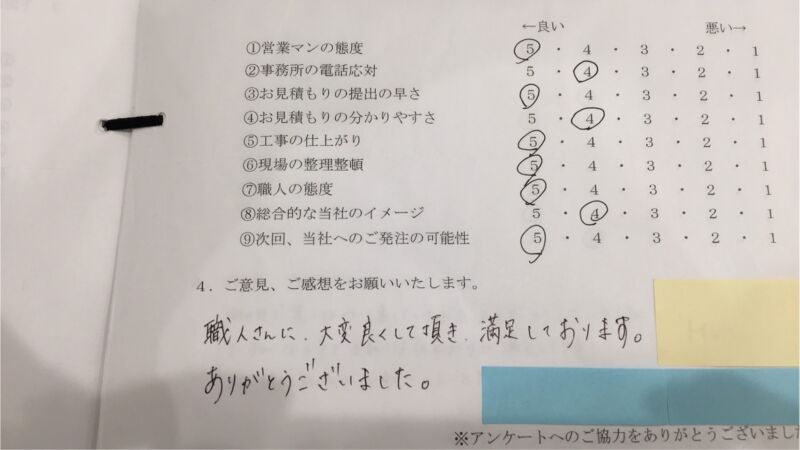 ←良い 悪い→
①営業マンの態度 5 ・ 4 ・ 3 ・ 2 ・ 1
②事務所の電話応対 5 ・ 4 ・ 3 ・ 2 ・ 1
③お見積もりの提出の早さ 5 ・ 4 ・ 3 ・ 2 ・ 1
④お見積もりの分かりやすさ 5 ・ 4 ・ 3 ・ 2 ・ 1
⑤工事の仕上がり 5 ・ 4 ・ 3 ・ 2 ・ 1
⑥現場の整理整頓 5 ・ 4 ・ 3 ・ 2 ・ 1
⑦職人の態度 5 ・ 4 ・ 3 ・ 2 ・ 1
⑧総合的な当社のイメージ 5 ・ 4 ・ 3 ・ 2 ・ 1
⑨次回、当社へのご発注の可能性 5 ・ 4 ・ 3 ・ 2 ・ 1
4．ご意見、ご感想をお願いいたします。
職人さんに、大変良くして頂き、満足しております。
ありがとうございました。
※アンケートへのご協力をありがとうございまし